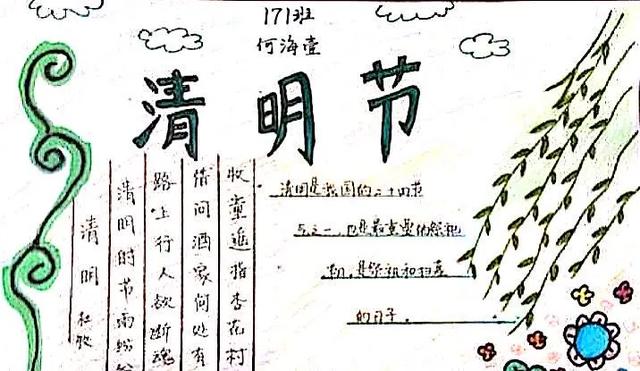 171班
何海壹
清明节
清明 杜牧
清明时节雨纷纷
路上行人欲断魂
借问酒家何处有
牧童遥指杏花村
清明是我国的二十四节
之一，也是最重要的祭祀
，是祭祖和扫墓
的日子。